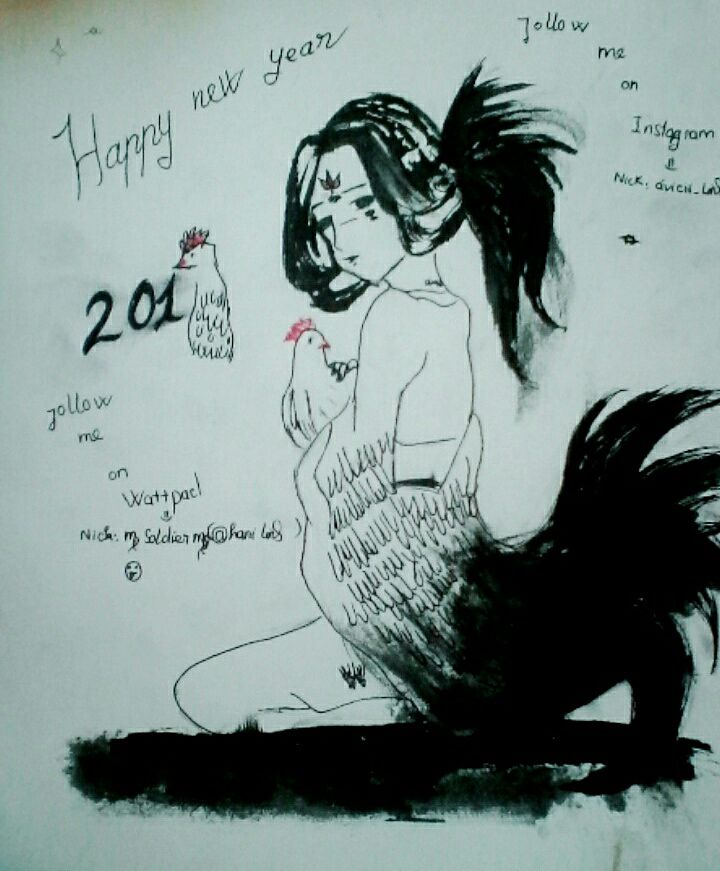 Happy new year
201
Follow
me
on
Instagram
Nick:
Follow
me
on
Wattpad
Nick: Soldier